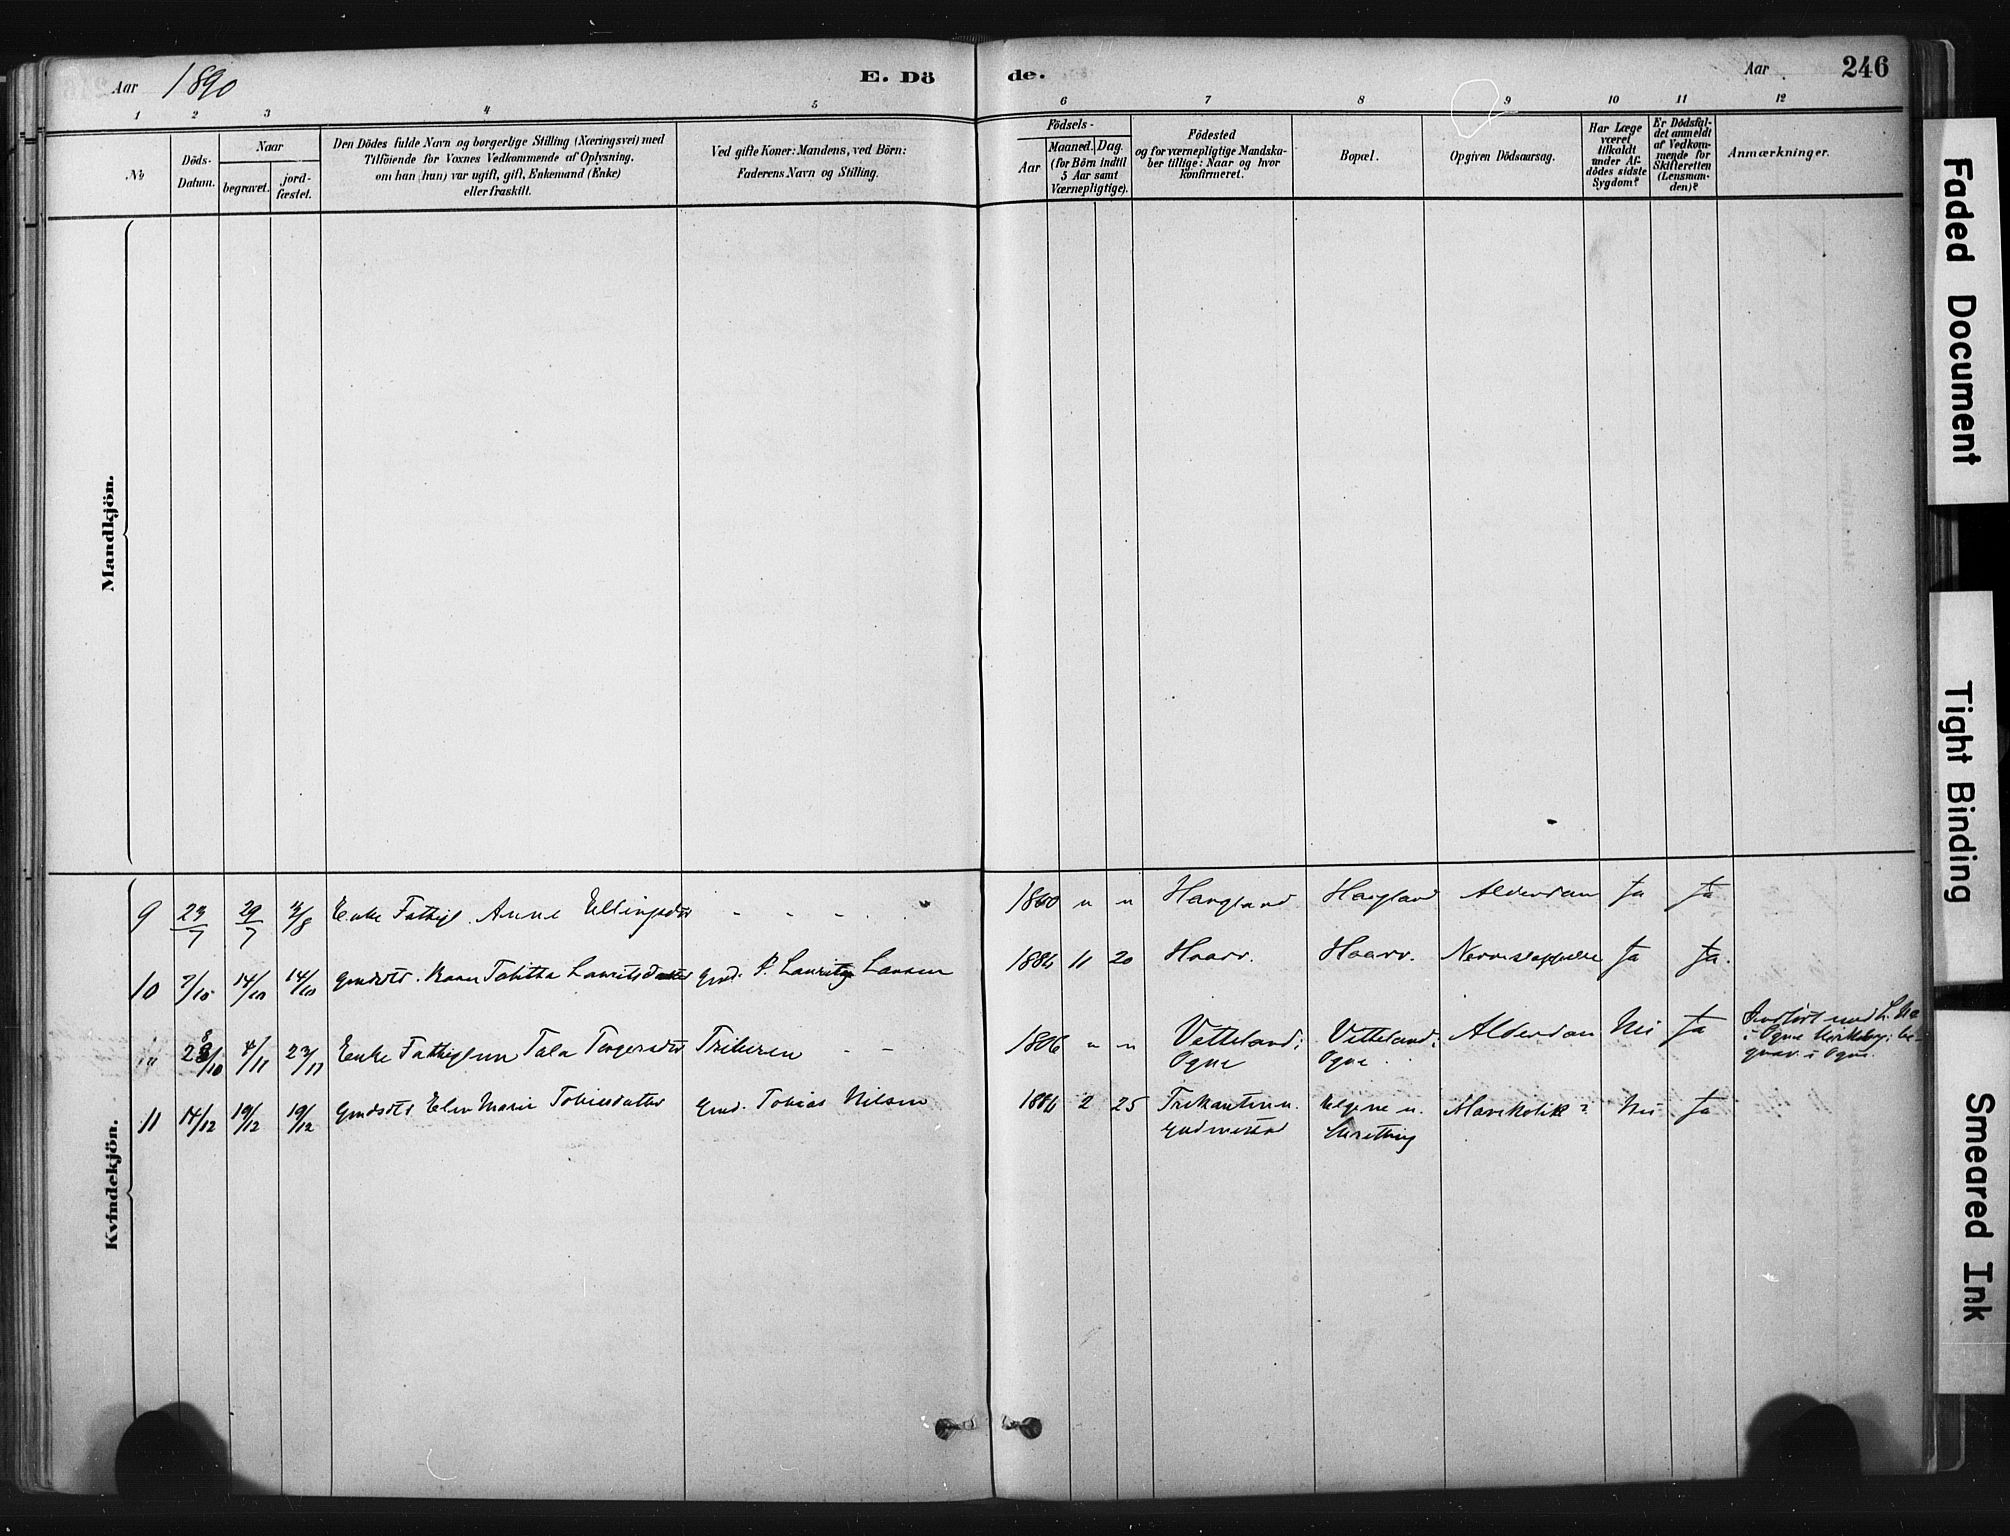 Aar 1890 E. Dö de. Aar 246
1 2 3 4 5 6 7 8 9 10 11 12
No
Döds-
Datum.
Naar
begravet.
jord-
fæstet.
Den Dödes fulde Navn og borgerlige Stilling (Næringsvei) med
Tilföiende for Voxnes Vedkommende af Oplysning,
om han (hun) var ugift, gift, Enkemand (Enke)
eller fraskilt.
Ved gifte Koner: Mandens, ved Börn:
Faderens Navn og Stilling.
Födsels-
Aar
Maaned. Dag.
(for Börn indtil
5 Aar samt
Værnepligtige).
Födested
og for værnepligtige Mandska-
ber tillige: Naar og hvor
konfirmeret.
Bopæl.
Opgiven Dödsaarsag.
Har Læge
været
tilkaldt
under Af-
dödes sidste
Sygdom?
Er Dödsfal-
det anmeldt
af Vedkom-
mende for
Skifteretten
(Lensman-
den)?
Anmærkninger.
Mandkjön.
Kvindekjön.
9 23/7 29/7 3/8 Enke Fattigl. Anne Ellingsdtr - - - Haugland Haugland Alderdom Ja Ja
10 7/10 14/10 14/10 Gmdsdtr. Tabitha Lauritsdatter Gmd. P. Larsen 1886 11 20 Haarr. Haarr. Ja Ja.
4/11 23/11 Enke Tala Torgersdtr - - 1806 " " Vetteland i Vetteland i Alderdom Nei Ja
Ogne Ogne.
i Ogne
i Ogne.
11 14/12 19/12 19/12 Gmdsdtr Elen Marie Tobiasdatter Gmd. Tobias Nilsen 2 25 Nei Ja
Faded Document
Tight Binding
Smeared Ink